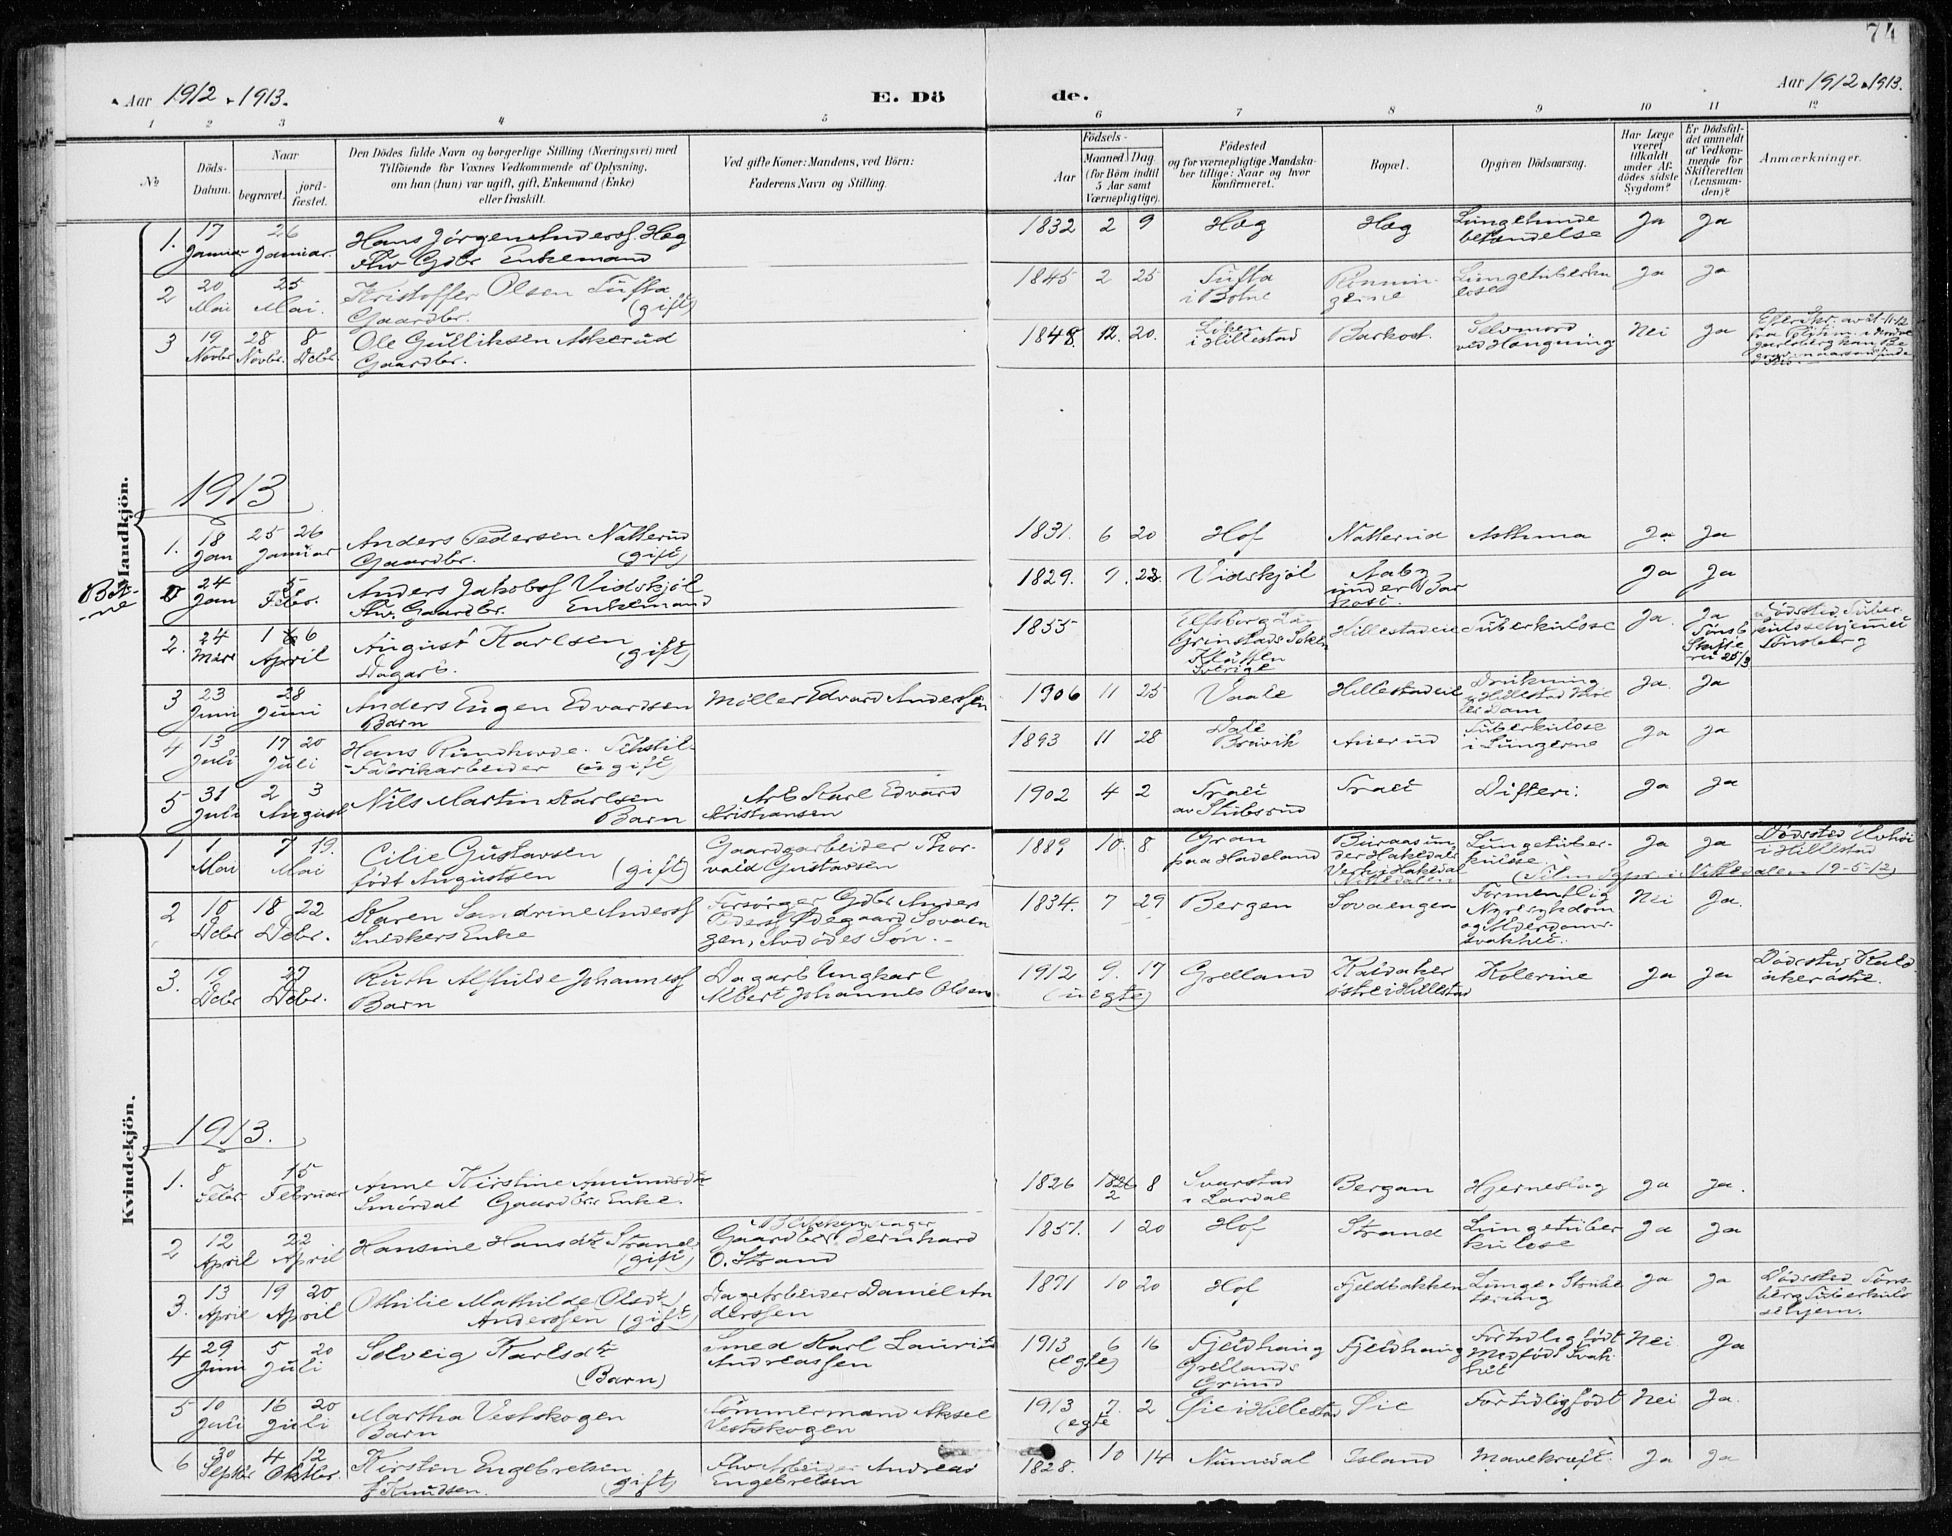 74
Aar 1912 - 1913.
E. Dö
de.
Aar 1912 - 1913.
1 2 3 4 5 6 7 8 9 10 11 12
No
Döds-
Datum.
Naar
begravet.
jord-
fæstet.
Den Dödes fulde Navn og borgerlige Stilling (Næringsvei) med
Tilföiende for Voxnes Vedkommende af Oplysning,
om han (hun) var ugift, gift, Enkemand (Enke)
eller fraskilt.
Ved gifte Koner: Mandens, ved Börn:
Faderens Navn og Stilling.
Födsels-
Aar
Maaned
Dag
(for Börn indtil
5 Aar samt
Værnepligtige).
Födested
og for værnepligtige Mandska-
ber tillige: Naar og hvor
konfirmeret.
Bopæl.
Opgiven Dödsaarsag.
Har Læge
været
tilkaldt
under Af-
dödes sidste
Sygdom?
Er Dödsfal-
det anmeldt
af Vedkom-
mende for
Skifteretten
(Lensman-
den)?
Anmærkninger.
Mandkjön.
1. 17 Januar 26 Januar. Hans Jörgen Anderss. Hæg
Fhv Gdbr Enkemand
1832 2 9 Hæg Hæg Lungebetændelse Ja Ja
2 20 Mai 25 Mai. Kristoffer Olsen Tufta
Gaardbr. (gift)
1845 2 25 Tufta
i Botne
Lungetuberku
lose
Ja Ja
3 19 Novbr 28 Novbr. 8 Debr. Ole Gulliksen Askerud
Gaardbr.
1848. 12. 20. i Hillestad Barkost. Selvmord
ved Hængning
Nei Ja
1913
1. 18 Jan 25 26 Januar Anders Pedersen Nøtterud
Gaardbr. (gift)
1831. 6 20 Hof Nøtterud Asthma Ja Ja
Bot-
ne
24 Jan 5 Febr. Anders Jakobss Vidskjöl
Fhv. Gaardbr. Enkemand
1829. 9. 23. Vidskjöl Aaby
under Bar
kost.
Ja Ja
2. 24 Mars 1 6 April August Karlsen
Dagarb. (gift)
1855 Elfsborg Län
Grinstads Soken
Sverige
Hillestadeie Tuberkulose Ja. Ja
Tönsb
Skifte
ret 25/3
Dödssted Tuber-
kulosehjemmet
Tönsberg
3 23 Juni 28 Juni Anders Eugen Edvardsen
Barn
Möller Edvard Anderssen
1906 11 25 Vaale Hillestadeie Drukning
i Hillestad
Dam
Ja. Ja
4 13 Juli 17 20 Juli Hans Rundhovde. Tekstil-
-Fabrikarbeider (ugift)
1893 11 28 Dale
Bruvik
Aierud Tuberkulose
i Lungerne
Ja Ja
5 31 Juli 2 3 August Nils Martin Karlsen
Barn
Arb Karl Edvard
Kristiansen
1902 4 2 Traet
av Stubsrud
Traet Difteri. Ja Ja
Kvindekjön.
1 1 Mai 7 19. Mai Cilie Gustavsen
födt Augustsen (gift)
Gaardgarbeider Thor-
vald Gustavsen
1889 10. 8 Gran
paa Hadeland
Buraas un
der Hakedals
Verk i Hakedal
Nittedalen
Lungetuber-
kulose.
Ja Ja Dödssted
i Hillestad
Nittedalen 19-5-12)
2 10 Debr 18 22 Debr. Karen Sandrine Anderss
Snidkers Enke
Forsörger Gdbr Anders
Ödegaard Sovaen
gen, Avdödes Sön.
1834. 7 29 Bergen Sovaengen Formentlig
Nyresykdom
og Alderdoms-
svakhet.
Nei Ja.
3. 19 Debr 27 Debr. Ruth Alfhilde Johanness
Barn
Dagarb Ungkarl
Albert Johannes Olsen
1912 9. 17
(uegte)
Grelland Kaldaker
östre i Hillestad
Kolerine Ja Ja Dödssted Kald
aker östre.
1913.
1. 8 Febr. 15 Februar Anne Kirstine Amundsdtr
Smördal Gaardbr. Enke.
1826 2 8 Svarstad
i Lardal
Bergan Hjerneslag Ja Ja.
2 12 April 22 April Hansine Hansdtr Strand
(gift)
Gaardbr. Bernhard
O. Strand
1851. 1 20 Hof Strand Lungetuber
kulose
Ja Ja
3. 13 April 19 20 April Othilie Mathilde Olsdtr
Anderssen (gift)
Dagarbeider Daniel An
derssen
1871 10 20 Hof Fjeldbakken Lunge
Ja Ja Dödssted Töns-
berg Tuberkulo
sehjem.
4 29 Juni 5 20 Juli Solveig Karlsdtr
(Barn)
Smed Karl Laurits
Andreassen
1913 6 16
(egte)
Fjeldhaug
Grellands
Grund
Fjeldhaug For tidlig födt
Medfödt Svak
het
Nei. Ja
5 10 Juli 16 20 Juli Martha Vestskogen
Barn
Tömmermand Aksel
Vestskogen
1913 7. 2
(egte
Øie i Hillestad Øie For tidlig födt Nei Ja.
6 30 Septbr 4 12 Oktbr. Kirsten Engebretsen
f Knudsen. (gift)
Fhv Arbeider Andreas
Engebretsen
1828. 10 14 Numedal Island Mavekræft. Ja Ja